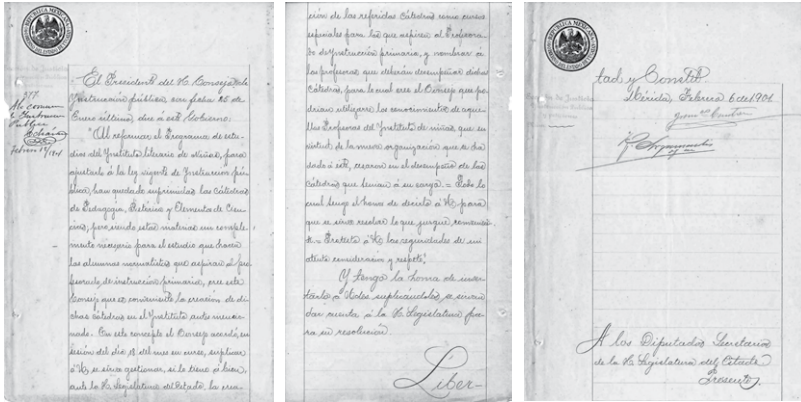 REPUBLICA MEXICANA
El Presidente del H. Consejo de
Instrucción pública con fecha 25 de
Enero último dice á este Gobierno.
"Al reformar el Programa de estu-
dios del Instituto literario de Niñas, para
ajustarlo á la ley vigente de Instrucción pú-
blica, han quedado suprimidas las cátedras
de Pedagogía, Retórica y Elementos de Cien-
cias; pero siendo estas materias un comple-
mento necesario para el estudio que hacen
las alumnas normalistas que aspiran al pro-
fesorado de instrucción primaria, cree este
Consejo que es conveniente la creación de di-
chas cátedras en el Instituto antes mencio-
nado. En este concepto el Consejo acordó, en
sesión del día 18 del mes en curso, suplicar
á U. se sirva gestionar, si lo tiene á bien,
ante la H. Legislatura del Estado, la crea-
ción de las referidas cátedras como cursos
especiales para las que aspiren al Profesora-
do de Instrucción primaria, y nombrar á
los profesores que deberán desempeñar dichas
cátedras, para lo cual cree el Consejo que po-
drían utilizarse los conocimientos de aque-
llos Profesores del Instituto de niñas, que en
virtud de la nueva organización que se ha
dado á este, cesaron en el desempeño de las
cátedras que tenían á su cargo. = Todo lo
cual tengo el honor de decirlo á U. para
que se sirva resolver lo que juzgue convenien-
te. = Protesto á U. las seguridades de mi
atenta consideración y respeto."
Y tengo la honra de inser-
tarlo á Udes. suplicándoles se sirvan
dar cuenta á la H. Legislatura pa-
ra su resolución.
Liber-
tad y Constitn.
Mérida, Febrero 6 de 1901.
A los Diputados Secretarios
de la H. Legislatura del Estado
Presente.